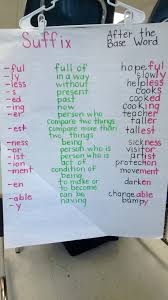 Suffix After the
Base Word
-ful full of hopeful
-ly in a way slowly
-less without helpless
-s present cooks
-ed past cooked
-ing now cooking
-er person who teacher
-er compare two things taller
-est compare more than tallest
two things
-ness being sickness
-or person who visitor
-ist person who is artist
-ion act of protection
-ment condition of movement
being
-en to make or darken
to become
-able can be changeable
-y having bumpy